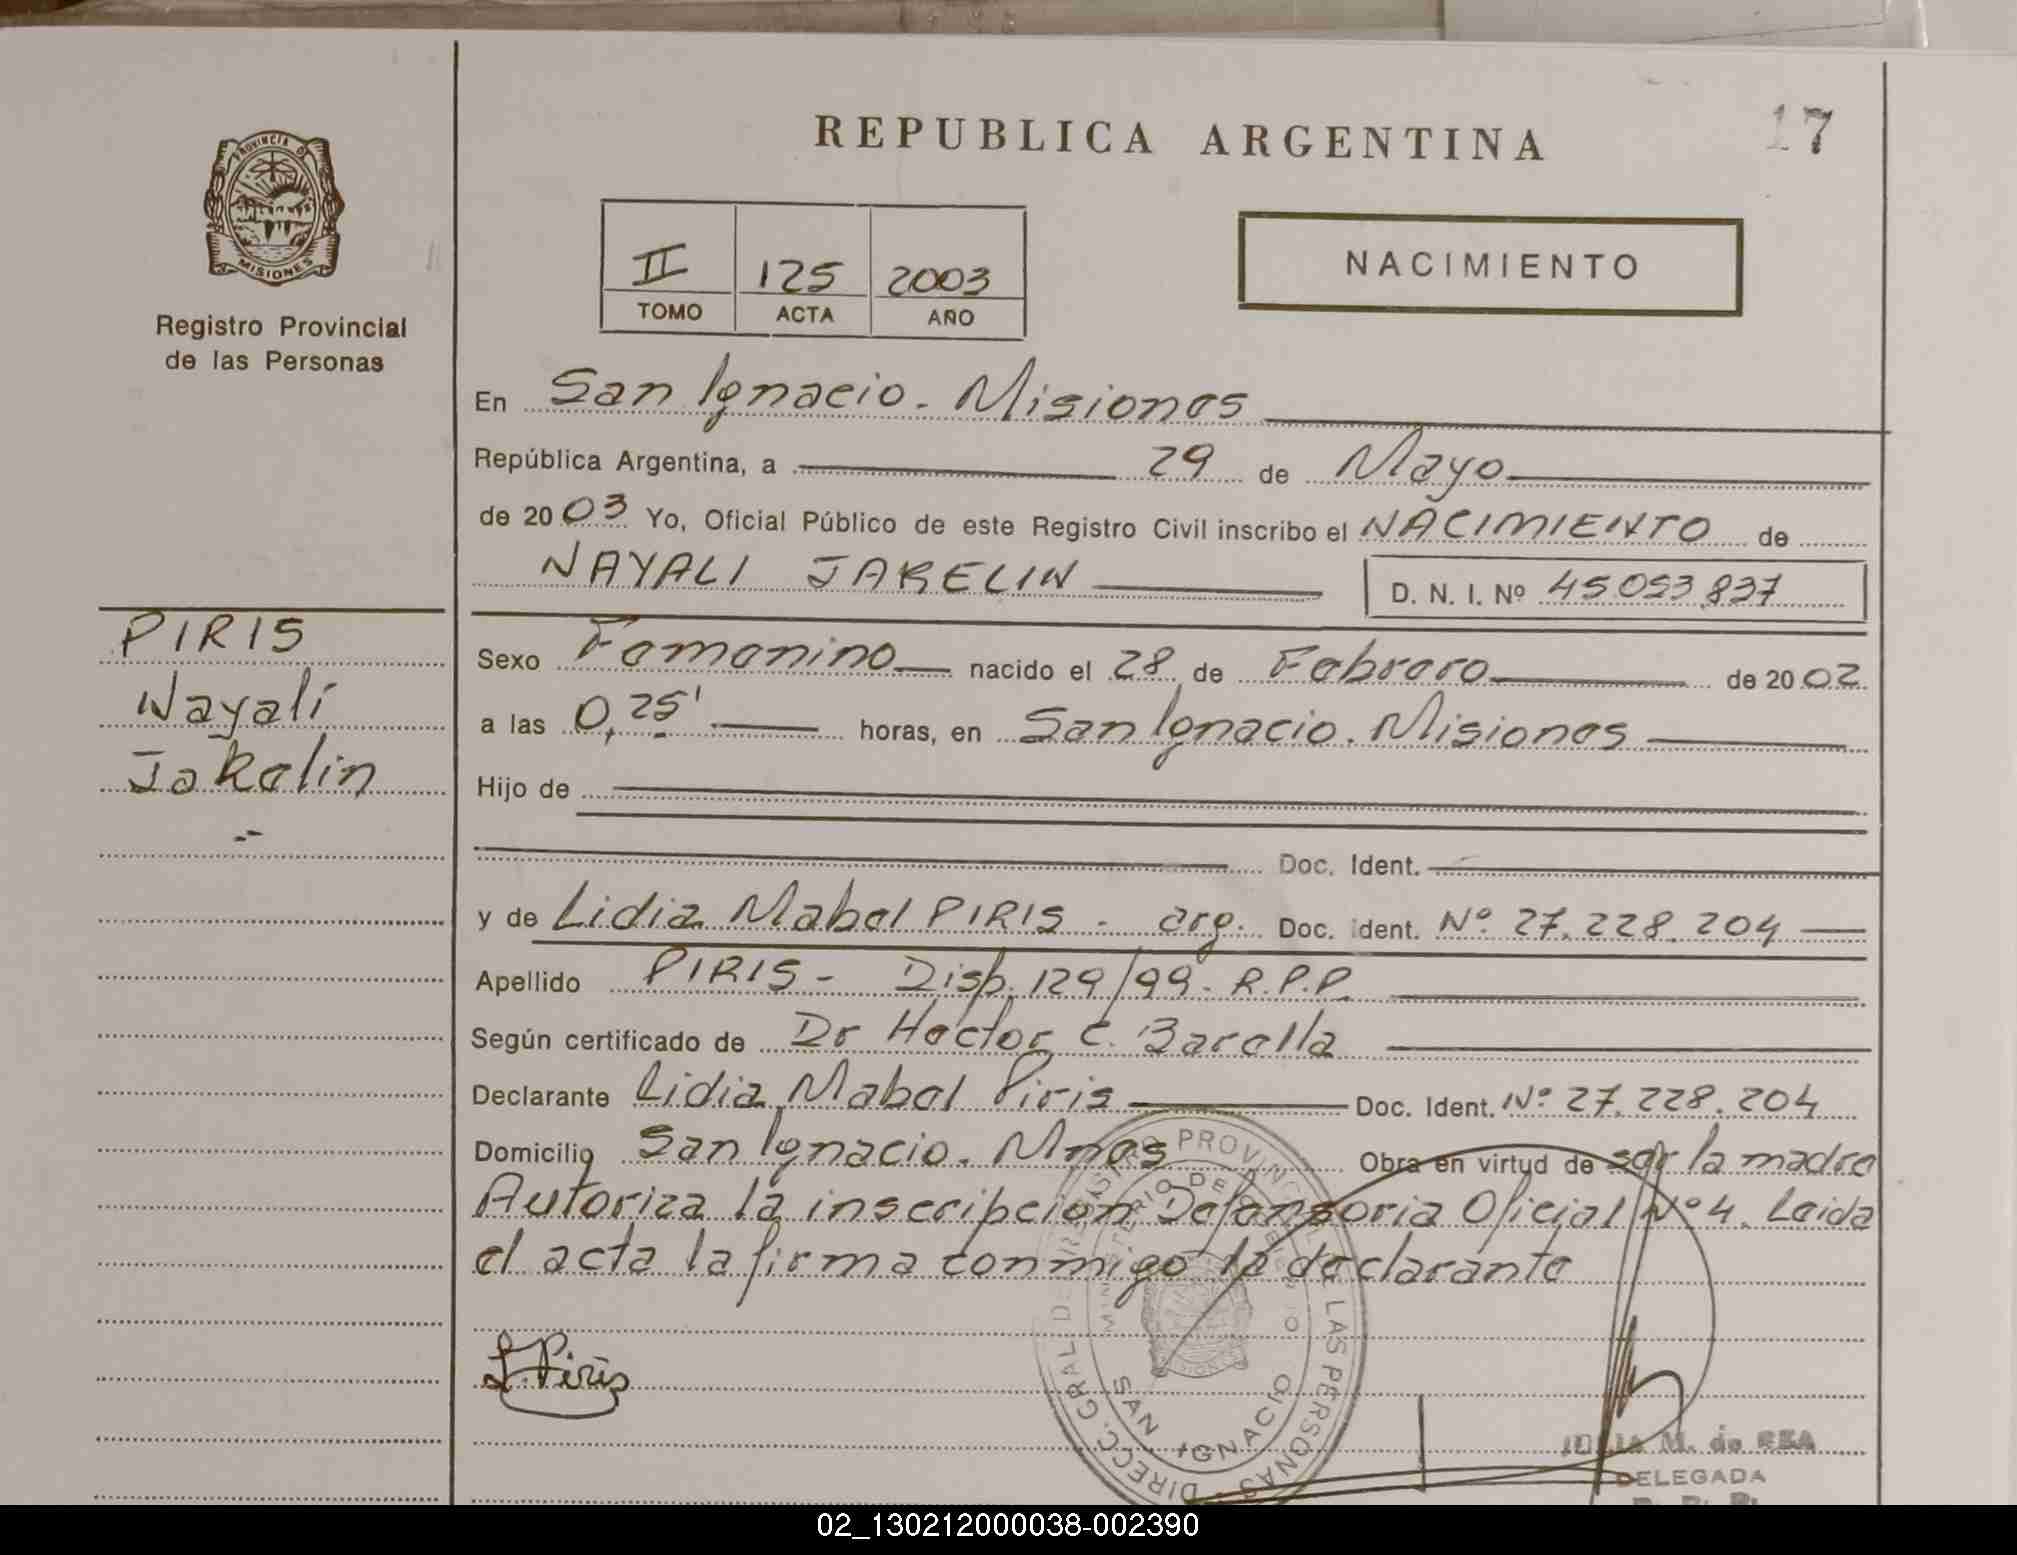 17
REPUBLICA ARGENTINA
PROVINCIA DE
MISIONES
Registro Provincial
de las Personas
II 125 2003
TOMO ACTA AÑO
NACIMIENTO
En San Ignacio. Misiones
República Argentina, a 29 de Mayo
de 2003 Yo, Oficial Público de este Registro Civil inscribo el NACIMIENTO de
NAYALI JAKELIN D. N. I. Nº 45.053.837
PIRIS
Nayali
Jakelin
Sexo Femenino nacido el 28 de Febrero de 2002
a las 0,25' horas, en San Ignacio. Misiones
Hijo de
Doc. Ident.
y de Lidia Mabel PIRIS - arg. Doc. ident. Nº 27.228.204
Apellido PIRIS - Disp. 129/99. R.P.P.
Según certificado de Dr Hector C. Barella
Declarante Lidia Mabel Piris Doc. Ident. Nº 27.228.204
Domicilio San Ignacio. Mnes Obra en virtud de ser la madre
Autoriza la inscripción Defensoria Oficial Nº 4. Leida
el acta la firma conmigo la declarante
L. Piris
DIRECC. GRAL DE REGISTRO PROVINCIAL DE LAS PERSONAS
MINISTERIO DE GOBIERNO
SAN IGNACIO
M. de REA
DELEGADA
02_130212000038-002390